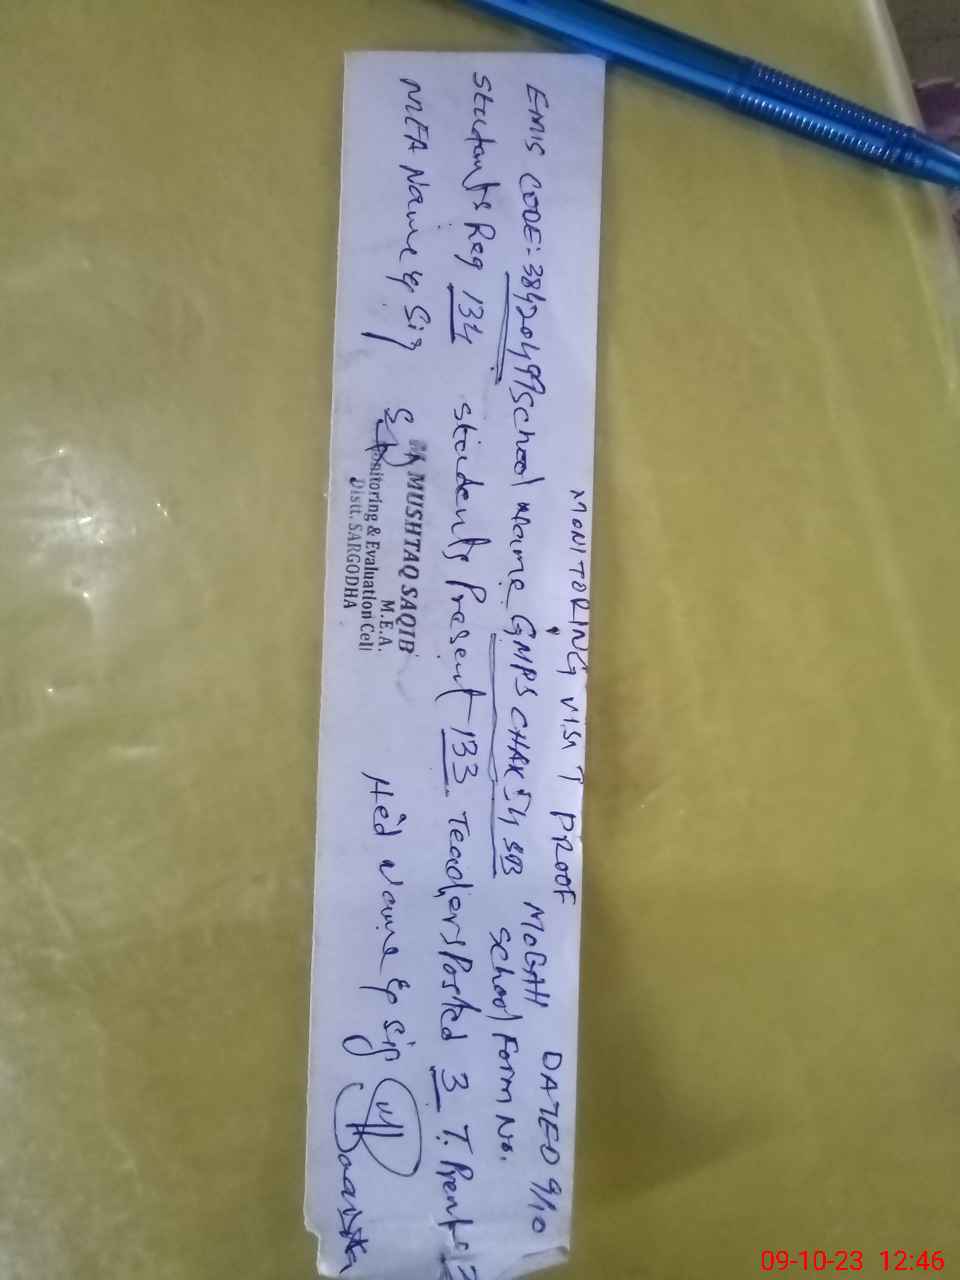 MONITORING VISIT PROOF DATED 9/10
EMIS CODE:- 38420499 School Name GMPS CHAK 54 SB MOGAH
School Form No.
Students Reg 134 Students Present 133 Teachers Posted 3 T. Prent
MEA Name & Sig Hed Name & Sig
MUSHTAQ SAQIB
M.E.A.
Monitoring & Evaluation Cell
Distt. SARGODHA
09-10-23 12:46